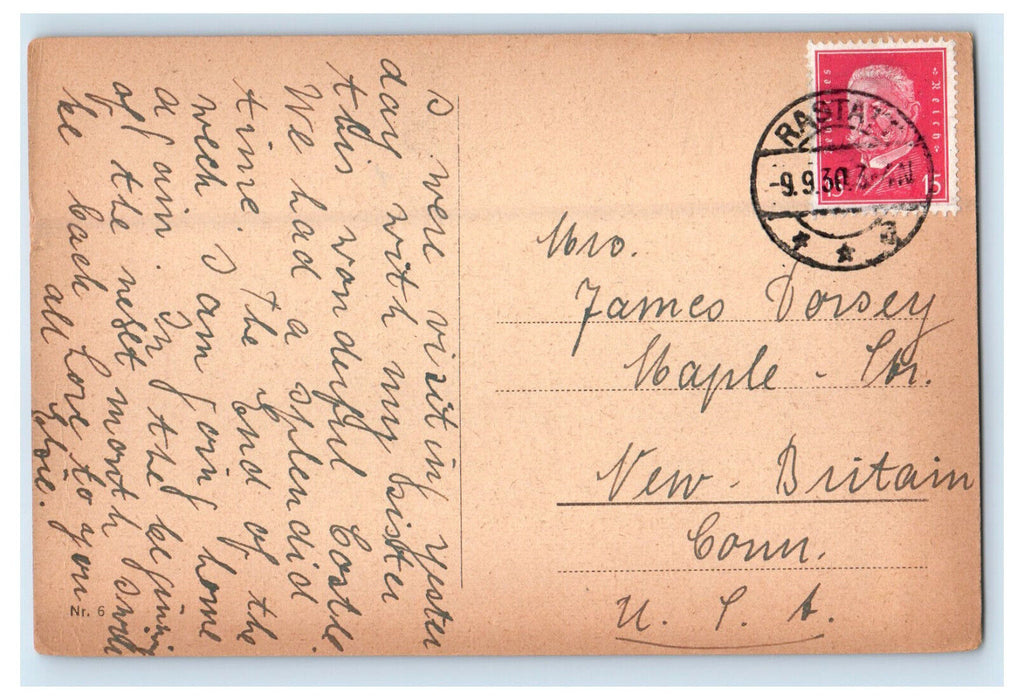 I were visiting yester
day with my sister
this wonderful Castle
We had a splendid
time. the End of the
week I am going home
again. In the begining
of the next month I will
be back Love to you
all
Elsie.
Deutsches Reich
15 15
RASTATT
-9.9.30. 3-4N
Mrs.
James Dorsey
Maple - Str.
New - Britain
Conn.
U. S. A.
Nr. 6